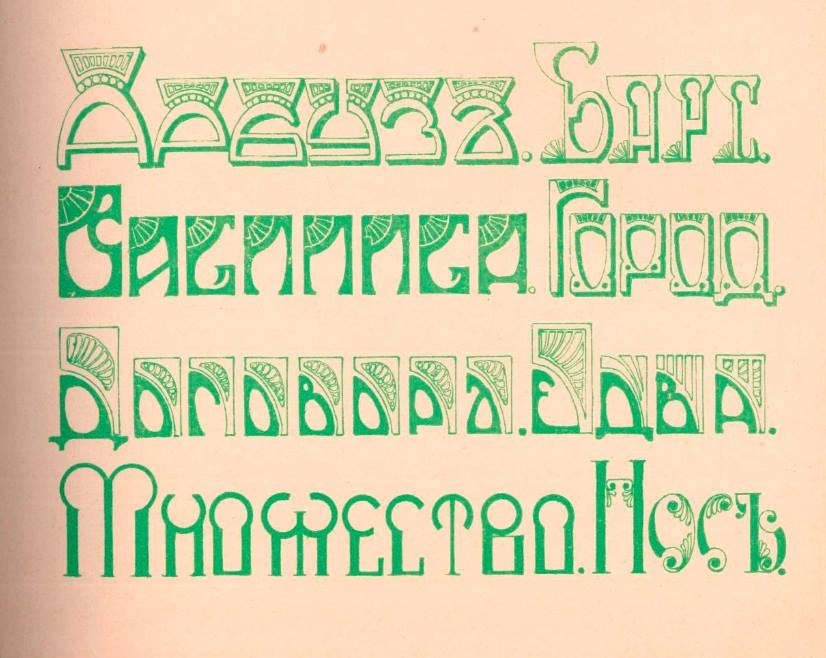 Арбузъ. Барс.
Василиса. Город.
Договоръ. Едва.
Множество. Носъ.